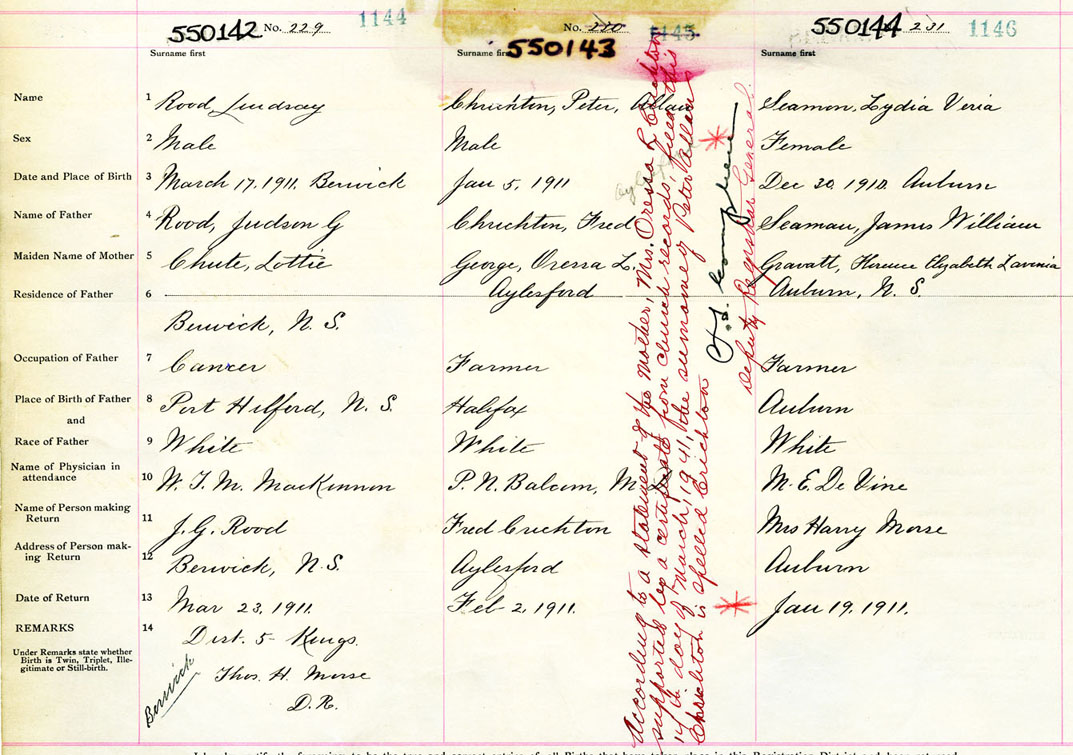 550142 No. 229 1144
550143 No. 230 1145
550144 231 1146
Surname first Surname first Surname first
Name 1 Rood, Lindsay Chrichton, Peter, Allan Seamon, Lydia Veria
Sex 2 Male Male Female
Date and Place of Birth 3 March 17, 1911. Berwick Jan 5, 1911 Dec 30, 1910. Auburn
Name of Father 4 Rood, Judson G Chrichton, Fred Seaman, James William
Maiden Name of Mother 5 Chute, Lottie George, Oressa L. Gravatt, Florence Elizabeth Lavenia
Residence of Father 6 Aylesford Auburn, N. S.
Berwick, N. S.
Occupation of Father 7 Farmer Farmer
Place of Birth of Father 8 Port Hilford, N. S. Halifax Auburn
and
Race of Father 9 White White White
Name of Physician in
attendance 10 W. T. M. MacKinnon P. N. Balcom, M. E. De Vine
Name of Person making
Return 11 J. G. Rood Fred Crichton Mrs Harry Morse
Address of Person mak-
ing Return 12 Berwick, N. S. Aylesford Auburn
Date of Return 13 Mar 23, 1911. Feb 2, 1911. Jan 19, 1911.
REMARKS 14 Dist. 5 - Kings.
Under Remarks state whether
Birth is Twin, Triplet, Ille-
gitimate or Still-birth.
Thos. H. Morse
D. R.
Berwick
According to a statement of the mother, Mrs. Oressa L. Crichton
supported by a certificate from church records, filed this
17th day of March, 1941, the surname of Peter Allan
Chrichton is spelled Crichton
Deputy Registrar General.